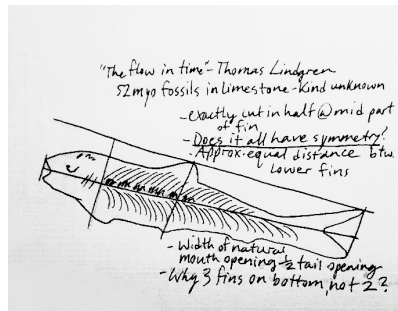 "The flow in time" - Thomas Lindgren
52myo fossils in limestone - Kind unknown
- exactly cut in half @ mid part
of fin
- Does it all have symmetry?
- Approx. equal distance btw.
lower fins
- Width of natural
mouth opening ½ tail opening
- Why 3 fins on bottom, not 2?